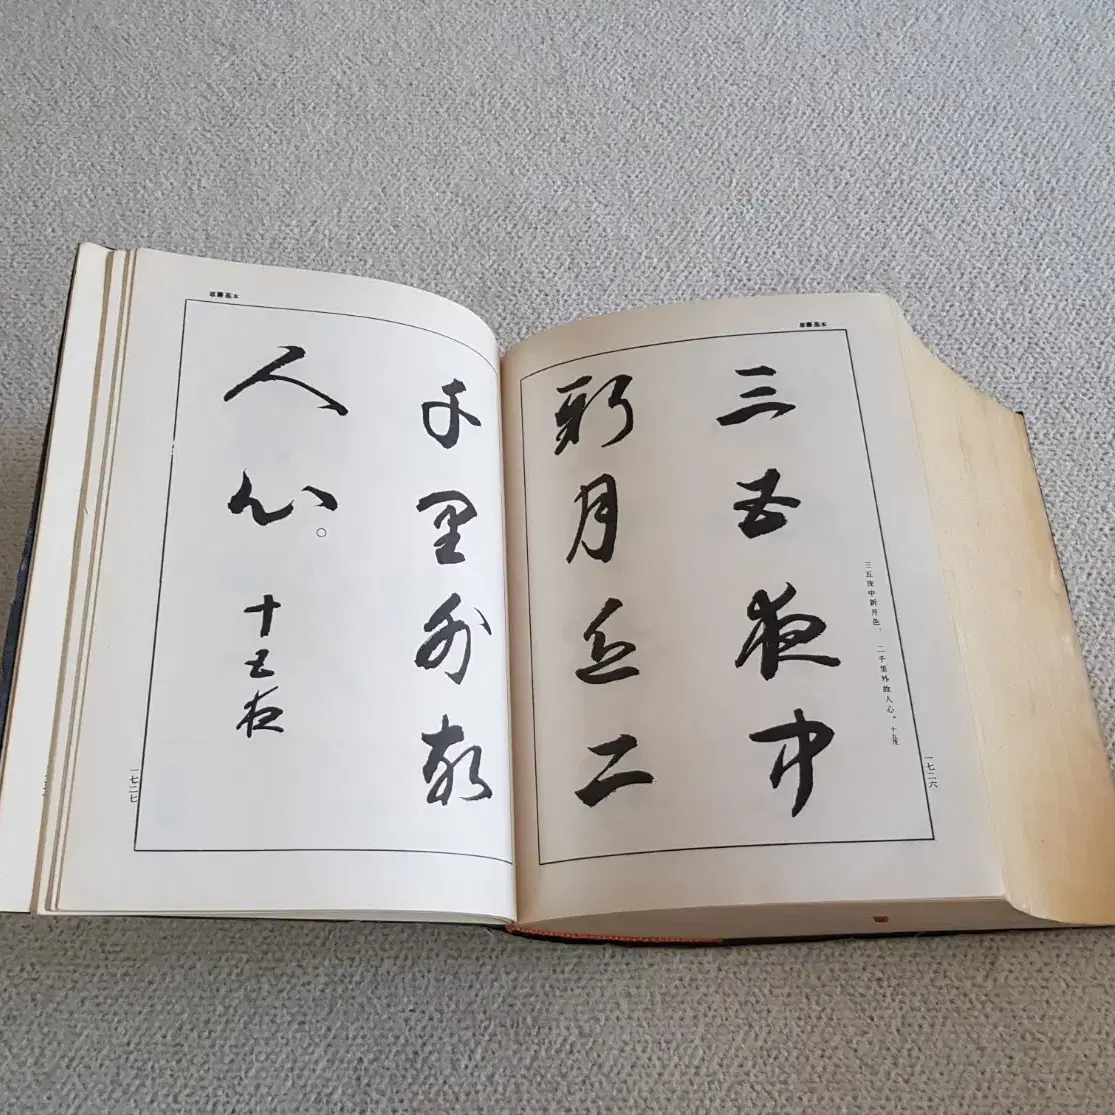 三五夜中新月色、二千里外故人心。十五夜
三五夜中
新月色二
千里外故
人心。
十五夜
一七二六
一七二七